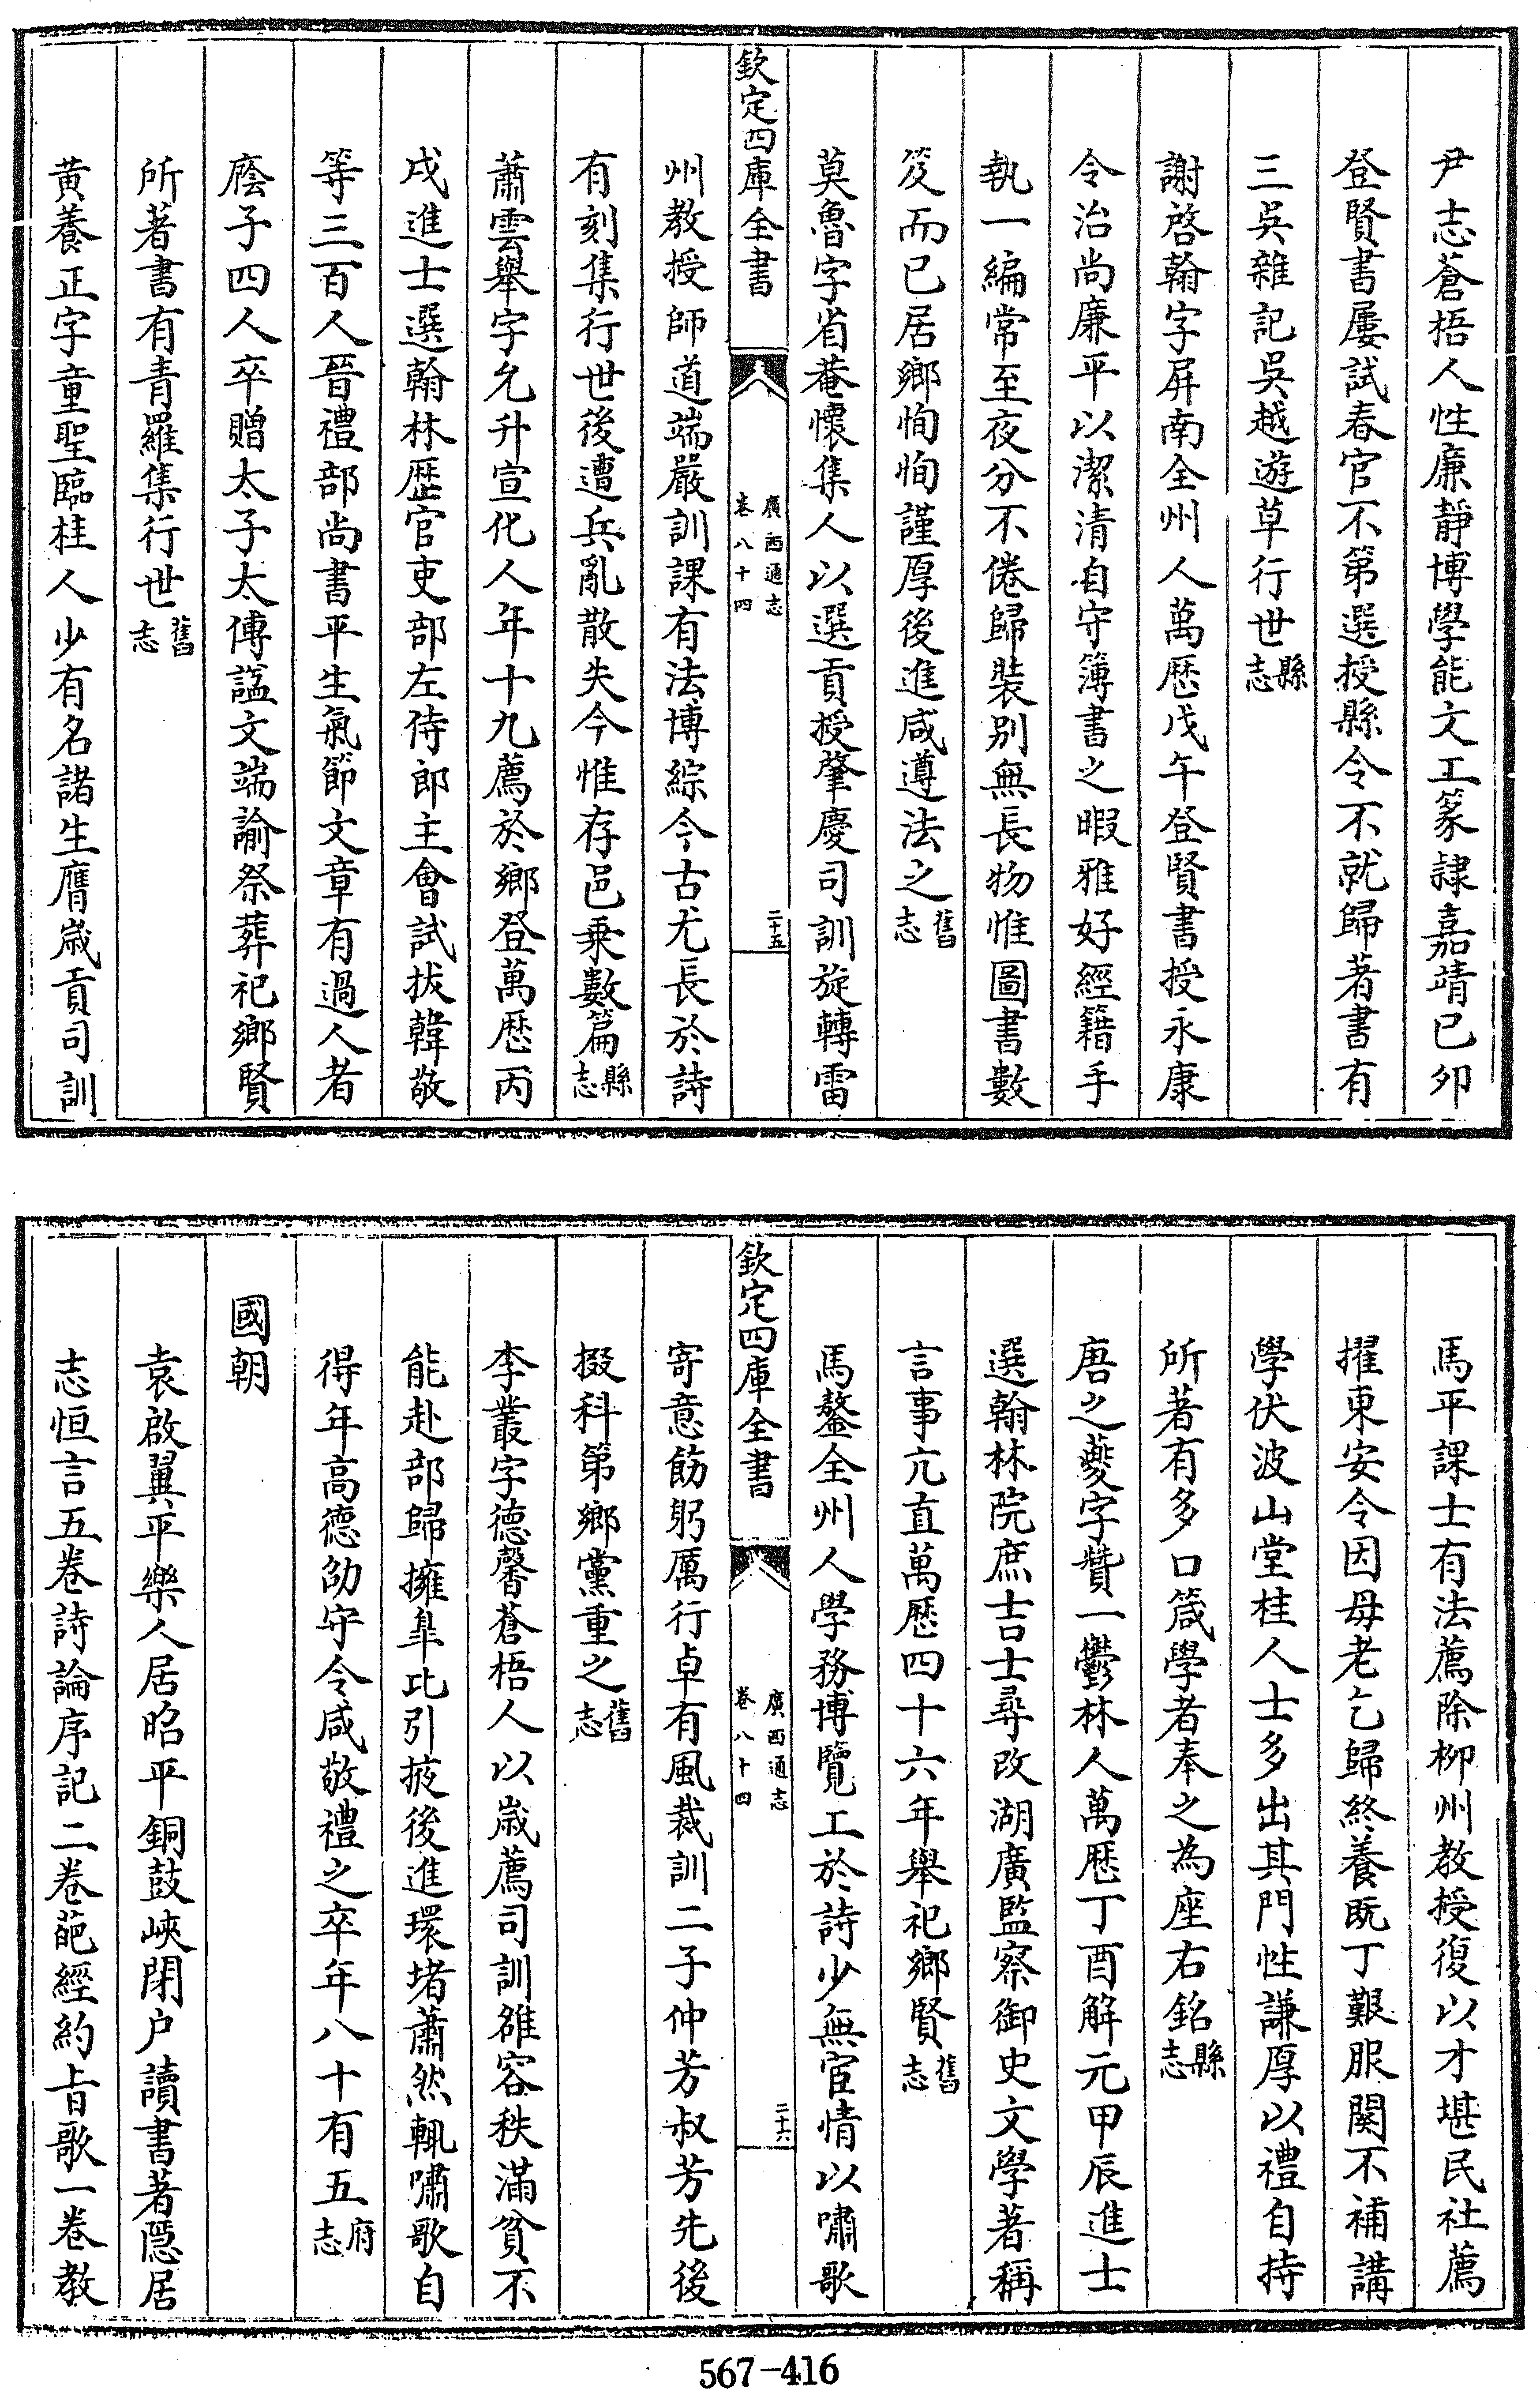 尹志蒼梧人性廉靜博學能文工篆隸嘉靖已夘
登賢書屢試春官不第選授縣令不就歸著書有
三吳雜記吳越遊草行世縣志
謝啓翰字屏南全州人萬歴戊午登賢書授永康
令治尚廉平以潔清自守簿書之暇雅好經籍手
執一編常至夜分不倦歸裝别無長物惟圖書數
笈而已居鄉恂恂謹厚後進咸遵法之舊志
莫魯字省菴懷集人以選貢授肇慶司訓旋轉雷
欽定四庫全書
廣西通志
卷八十四
二十五
州教授師道端嚴訓課有法博綜今古尤長於詩
有刻集行世後遭兵亂散失今惟存邑乗數篇縣志
蕭雲舉字允升宣化人年十九薦於鄉登萬歴丙
戌進士選翰林歴官吏部左侍郎主會試拔韓敬
等三百人晉禮部尚書平生氣節文章有過人者
廕子四人卒贈太子太傅諡文端諭祭葬祀鄉賢
所著書有青羅集行世舊志
黄養正字童聖臨桂人少有名諸生膺嵗貢司訓
馬平課士有法薦除柳州教授復以才堪民社薦
擢東安令因母老乞歸終養既丁艱服闋不補講
學伏波山堂桂人士多出其門性謙厚以禮自持
所著有多口箴學者奉之為座右銘縣志
唐之夔字贊一鬱林人萬歴丁酉解元甲辰進士
選翰林院庶吉士尋改湖廣監察御史文學著稱
言事亢直萬歴四十六年舉祀鄉賢舊志
馬鏊全州人學務博覽工於詩少無宦情以嘯歌
欽定四庫全書
廣西通志
卷八十四
二十六
寄意飭躬厲行卓有風裁訓二子仲芳叔芳先後
掇科第鄉黨重之舊志
李叢字德馨蒼梧人以嵗薦司訓雒容秩滿貧不
能赴部歸擁臯比引掖後進環堵蕭然輒嘯歌自
得年高德劭守令咸敬禮之卒年八十有五府志
國朝
袁啟翼平樂人居昭平銅鼓峽閉户讀書著隱居
志恒言五卷詩論序記二卷葩經約㫖歌一卷教
567-416